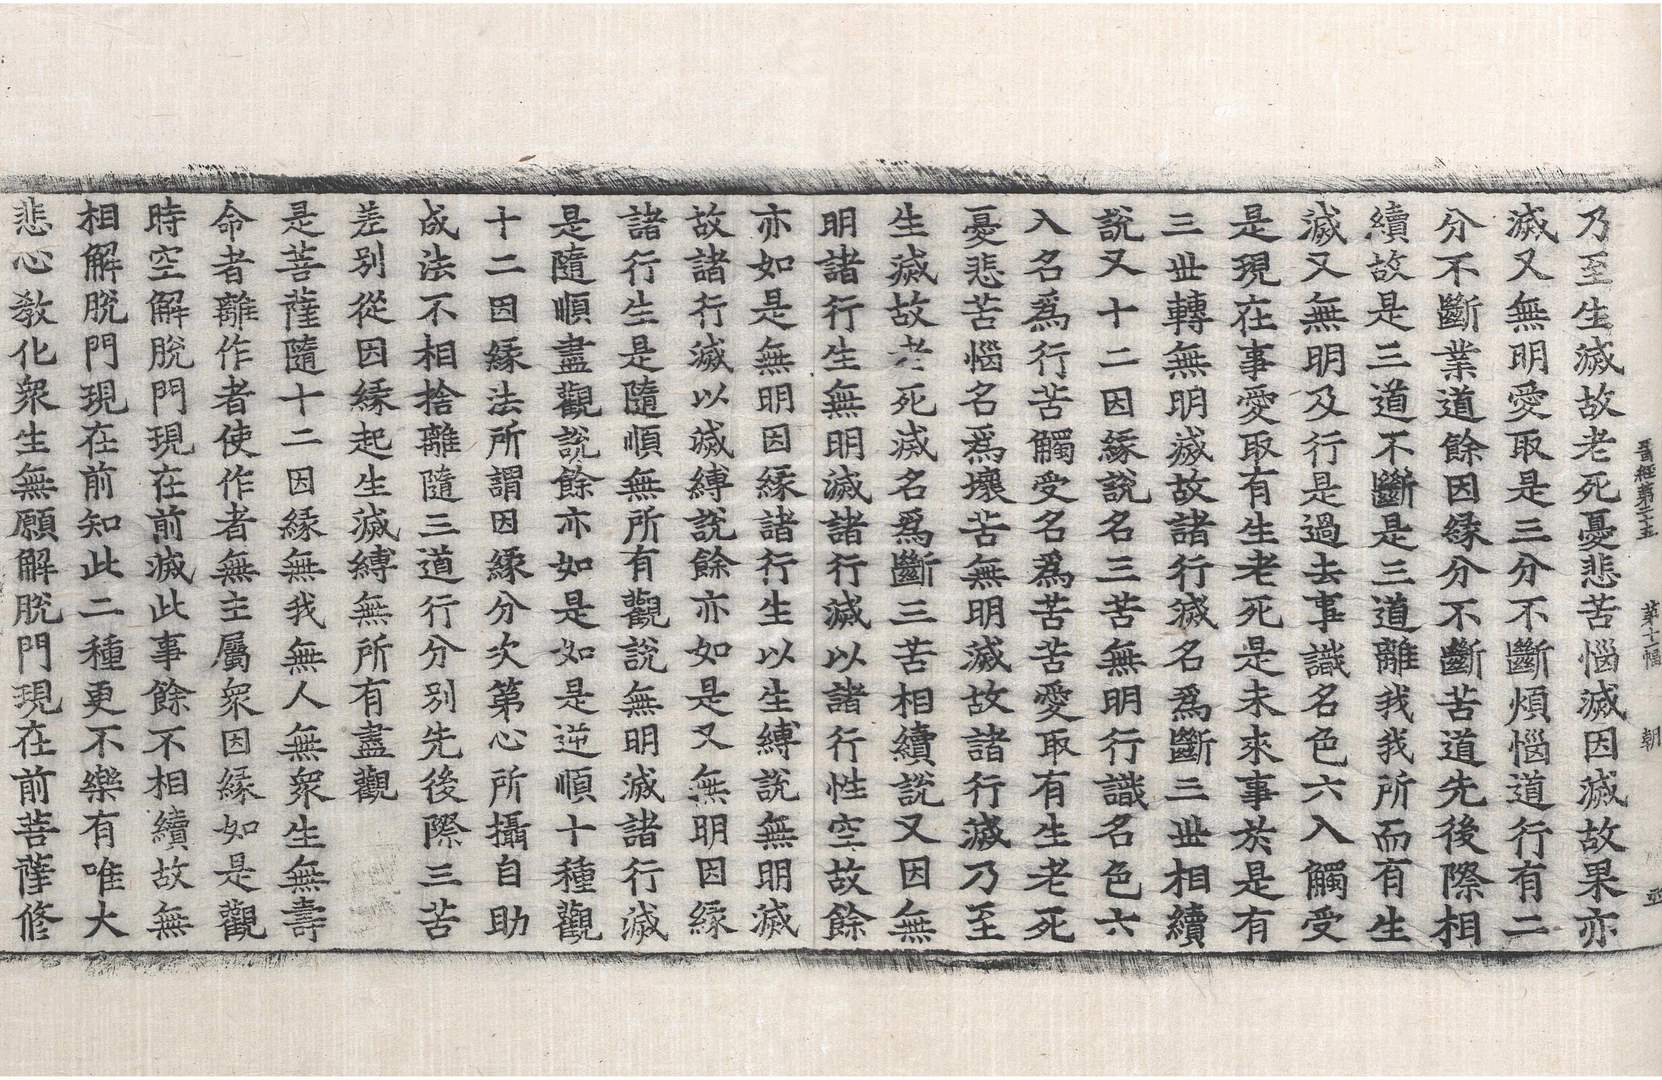 晉經第二十五 第十二幅 朝
乃至生滅故老死憂悲苦惱滅因滅故果亦
滅又無明愛取是三分不斷煩惱道行有二
分不斷業道餘因緣分不斷苦道先後際相
續故是三道不斷是三道離我我所而有生
滅又無明及行是過去事識名色六入觸受
是現在事愛取有生老死是未來事於是有
三世轉無明滅故諸行滅名爲斷三世相續
說又十二因緣說名三苦無明行識名色六
入名爲行苦觸受名爲苦苦愛取有生老死
憂悲苦惱名爲壞苦無明滅故諸行滅乃至
生滅故老死滅名爲斷三苦相續說又因無
明諸行生無明滅諸行滅以諸行性空故餘
亦如是無明因緣諸行生以生縛說無明滅
故諸行滅以滅縛說餘亦如是又無明因緣
諸行生是隨順無所有觀說無明滅諸行滅
是隨順盡觀說餘亦如是如是逆順十種觀
十二因緣法所謂因緣分次第心所攝自助
成法不相捨離隨三道行分別先後際三苦
差別從因緣起生滅縛無所有盡觀
是菩薩隨十二因緣無我無人無衆生無壽
命者離作者使作者無主屬衆因緣如是觀
時空解脫門現在前滅此事餘不相續故無
相解脫門現在前知此二種更不樂有唯大
悲心教化衆生無願解脫門現在前菩薩修